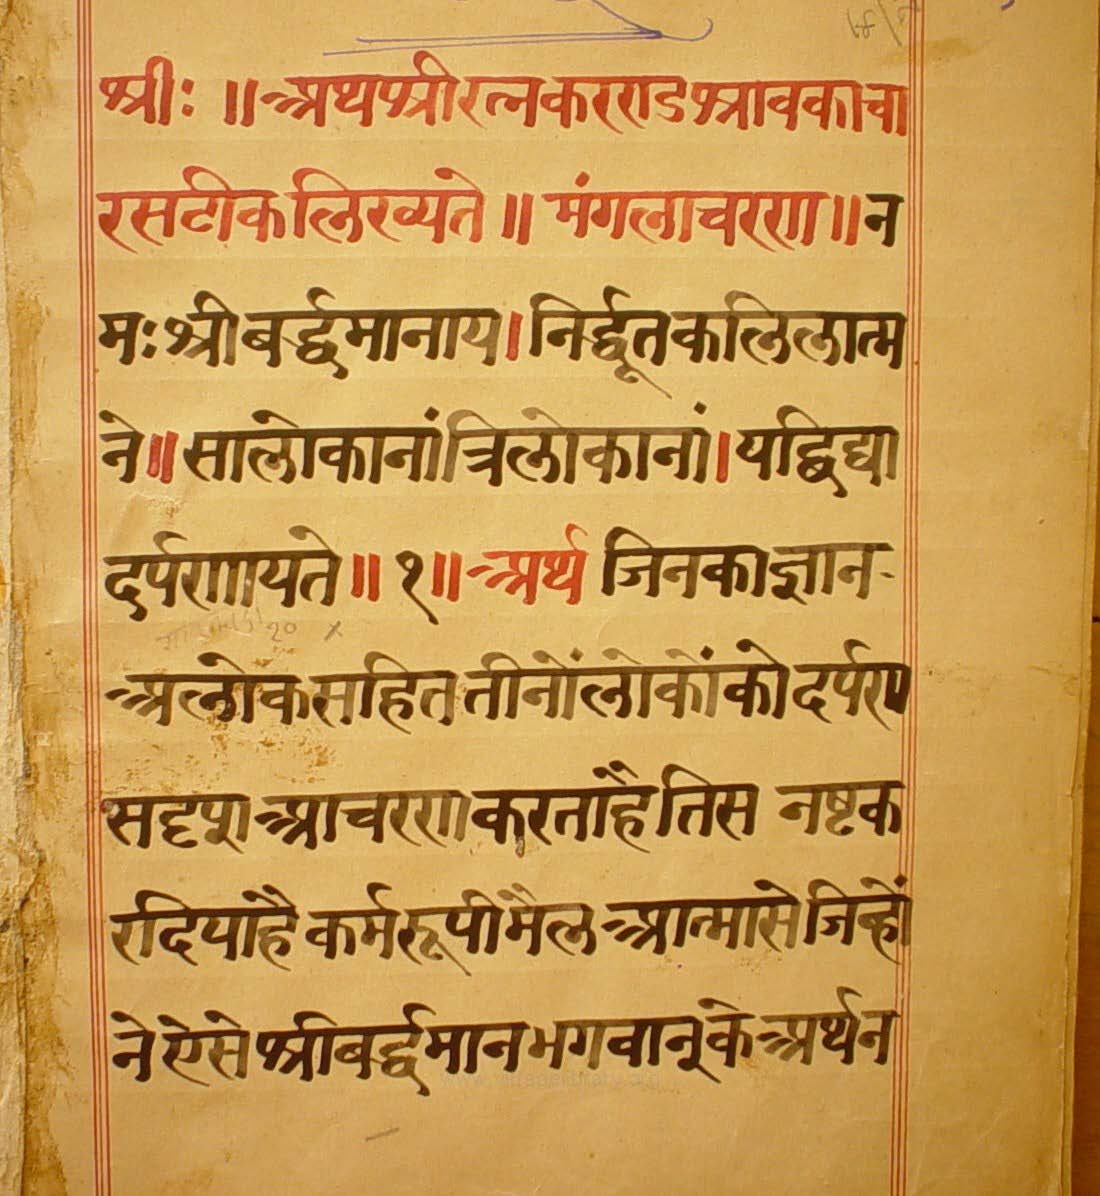 श्रीः ॥ अथ श्री रत्नकरण्ड श्रावकाचा
र सटीक लिख्यते ॥ मंगलाचरण ॥ न
मः श्री बर्द्धमानाय । निर्द्धूत कलिलात्म
ने ॥ सालोकानां त्रिलोकानां । यद्विद्या
दर्पणायते ॥ १ ॥ अर्थ जिनका ज्ञान-
अलोक सहित तीनों लोकों को दर्पण
सदृश आचरण करता है तिस नष्ट क
र दिया है कर्म रूपी मैल आत्मा से जिन्हों
ने ऐसे श्री बर्द्धमान भगवान् के अर्थ न